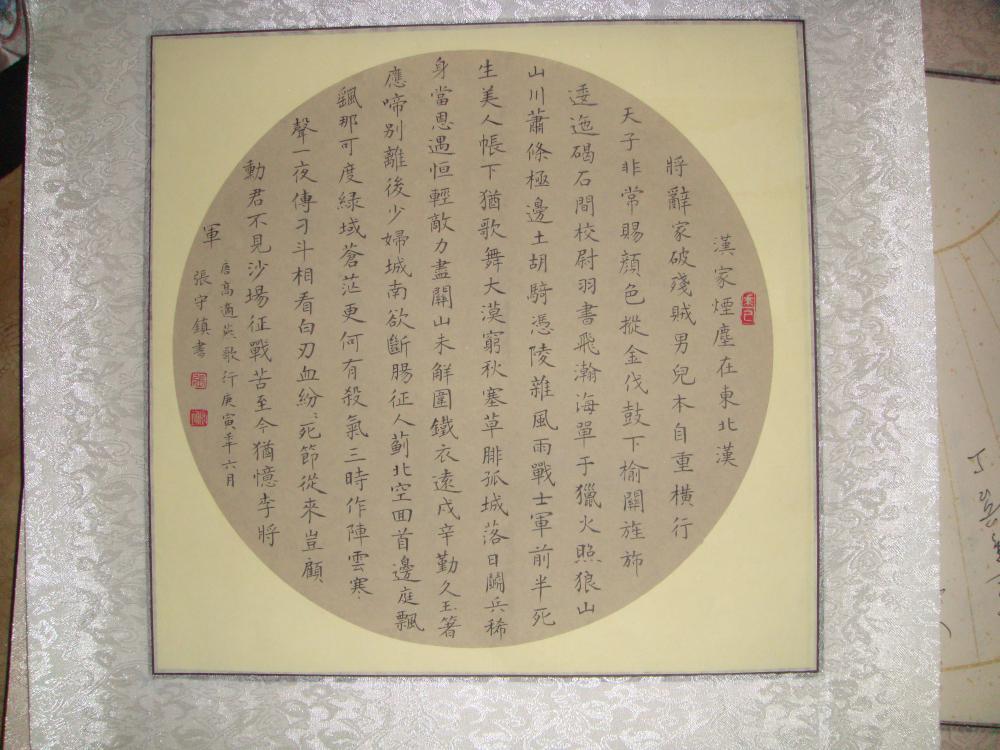 漢家煙塵在東北漢
將辭家破殘賊男兒本自重橫行
天子非常賜顏色摐金伐鼓下榆關旌斾
逶迤碣石間校尉羽書飛瀚海單于獵火照狼山
山川蕭條極邊土胡騎憑陵雜風雨戰士軍前半死
生美人帳下猶歌舞大漠窮秋塞草腓孤城落日鬭兵稀
身當恩遇恒輕敵力盡關山未解圍鐵衣遠戍辛勤久玉箸
應啼別離後少婦城南欲斷腸征人薊北空回首邊庭飄
颻那可度緑域蒼茫更何有殺氣三時作陣雲寒
聲一夜傳刁斗相看白刃血紛〻死節從來豈顧
勳君不見沙場征戰苦至今猶憶李將
軍
唐高適燕歌行庚寅年六月
張守鎮書